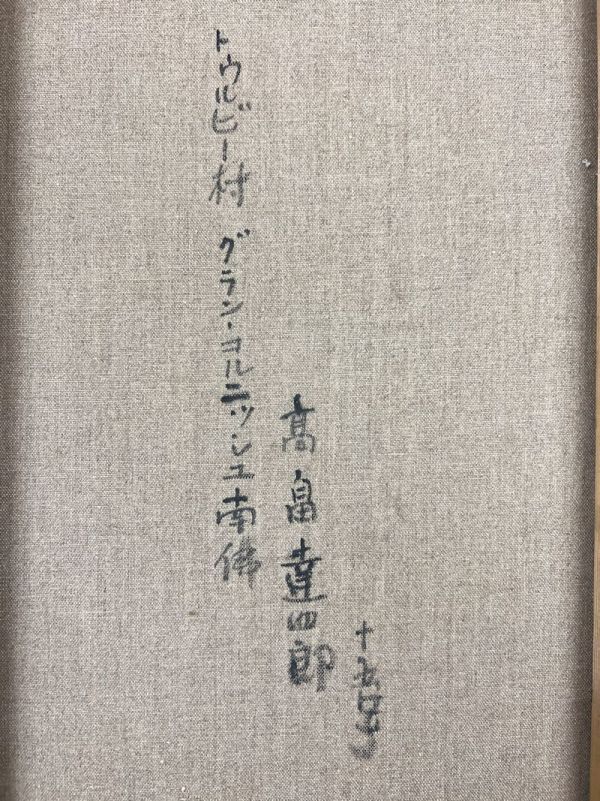 十五号
高畠達四郎
トゥルビー村 グラン・コルニッシュ南佛